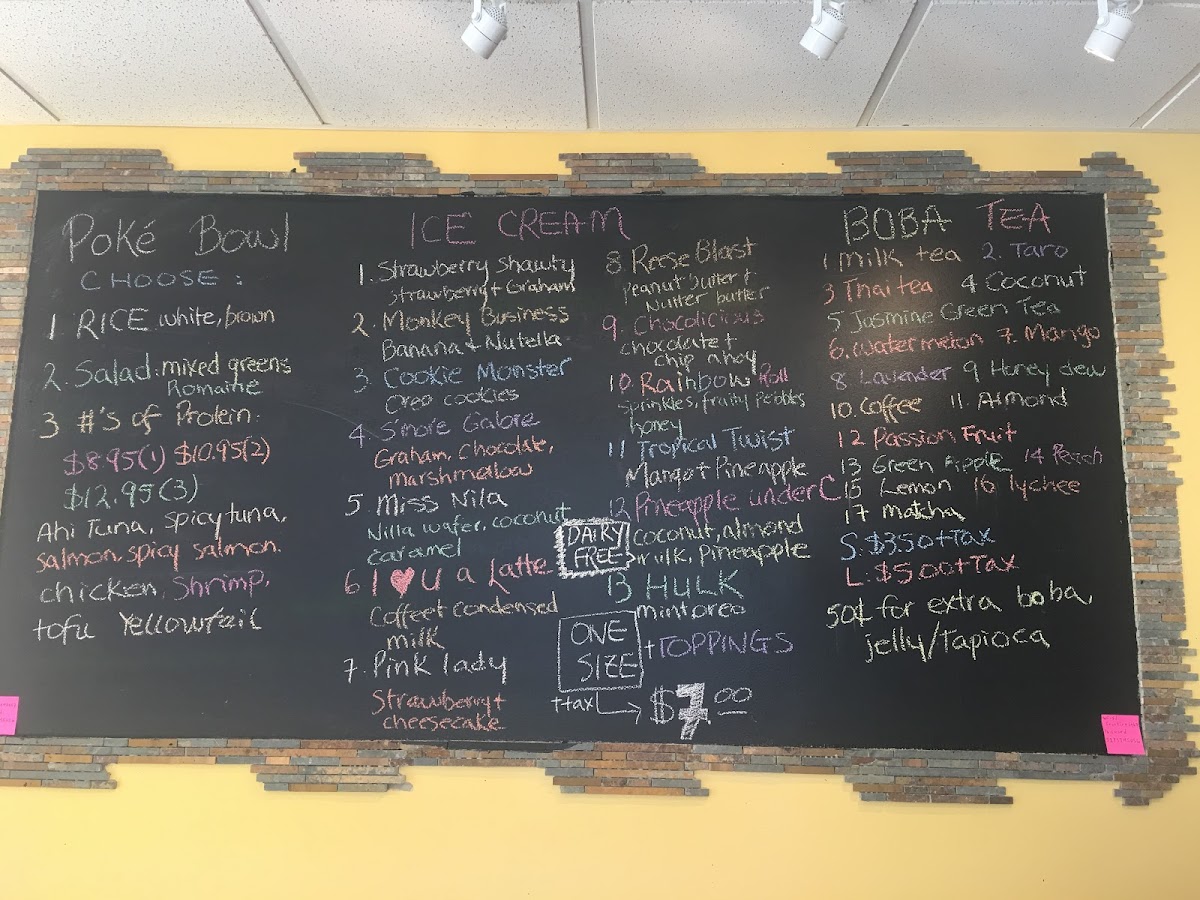 Poké Bowl
CHOOSE:
1. RICE white, brown
2. Salad. mixed greens
Romaine
3 #'s of Protein.
$8.95(1) $10.95(2)
$12.95(3)
Ahi Tuna, spicy tuna,
salmon, spicy salmon.
chicken, Shrimp,
tofu Yellowtail
ICE CREAM
1. Strawberry Shawty
Strawberry + Graham
2. Monkey Business
Banana + Nutella
3. Cookie Monster
Oreo cookies
4. S'more Galore
Graham, Chocolate,
marshmallow
5. Miss Nila
Nilla wafer, coconut
caramel
6 I ♥ U a Latte
Coffee + condensed
milk
7. Pink lady
Strawberry +
cheesecake
8. Reese Blast
Peanut butter +
Nutter butter
9. Chocolicious
chocolate +
chip ahoy
10. Rainbow Roll
sprinkles, fruity pebbles
honey
11 Tropical Twist
Mango + Pineapple
12 Pineapple under C
DAIRY
FREE
coconut, almond
milk, pineapple
13 HULK
mint oreo
ONE
SIZE
+TOPPINGS
+tax
$7.00
BOBA TEA
1. Milk tea 2. Taro
3 Thai tea 4 Coconut
5 Jasmine Green Tea
6. Watermelon 7. Mango
8 Lavender 9 Honey dew
10. Coffee 11. Almond
12 Passion Fruit
13 Green Apple 14 Peach
15 Lemon 16 lychee
17 matcha
S. $3.50+Tax
L. $5.00+Tax
50¢ for extra boba,
jelly/Tapioca